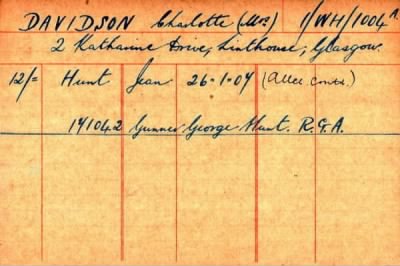 DAVIDSON Charlotte (Mrs) 1/WH/1004A
2 Katharine Drive, Linthouse, Glasgow.
12/= Hunt Jean 26-1-07 (Allce. conts.)
141042 Gunner George Hunt. R.G.A.